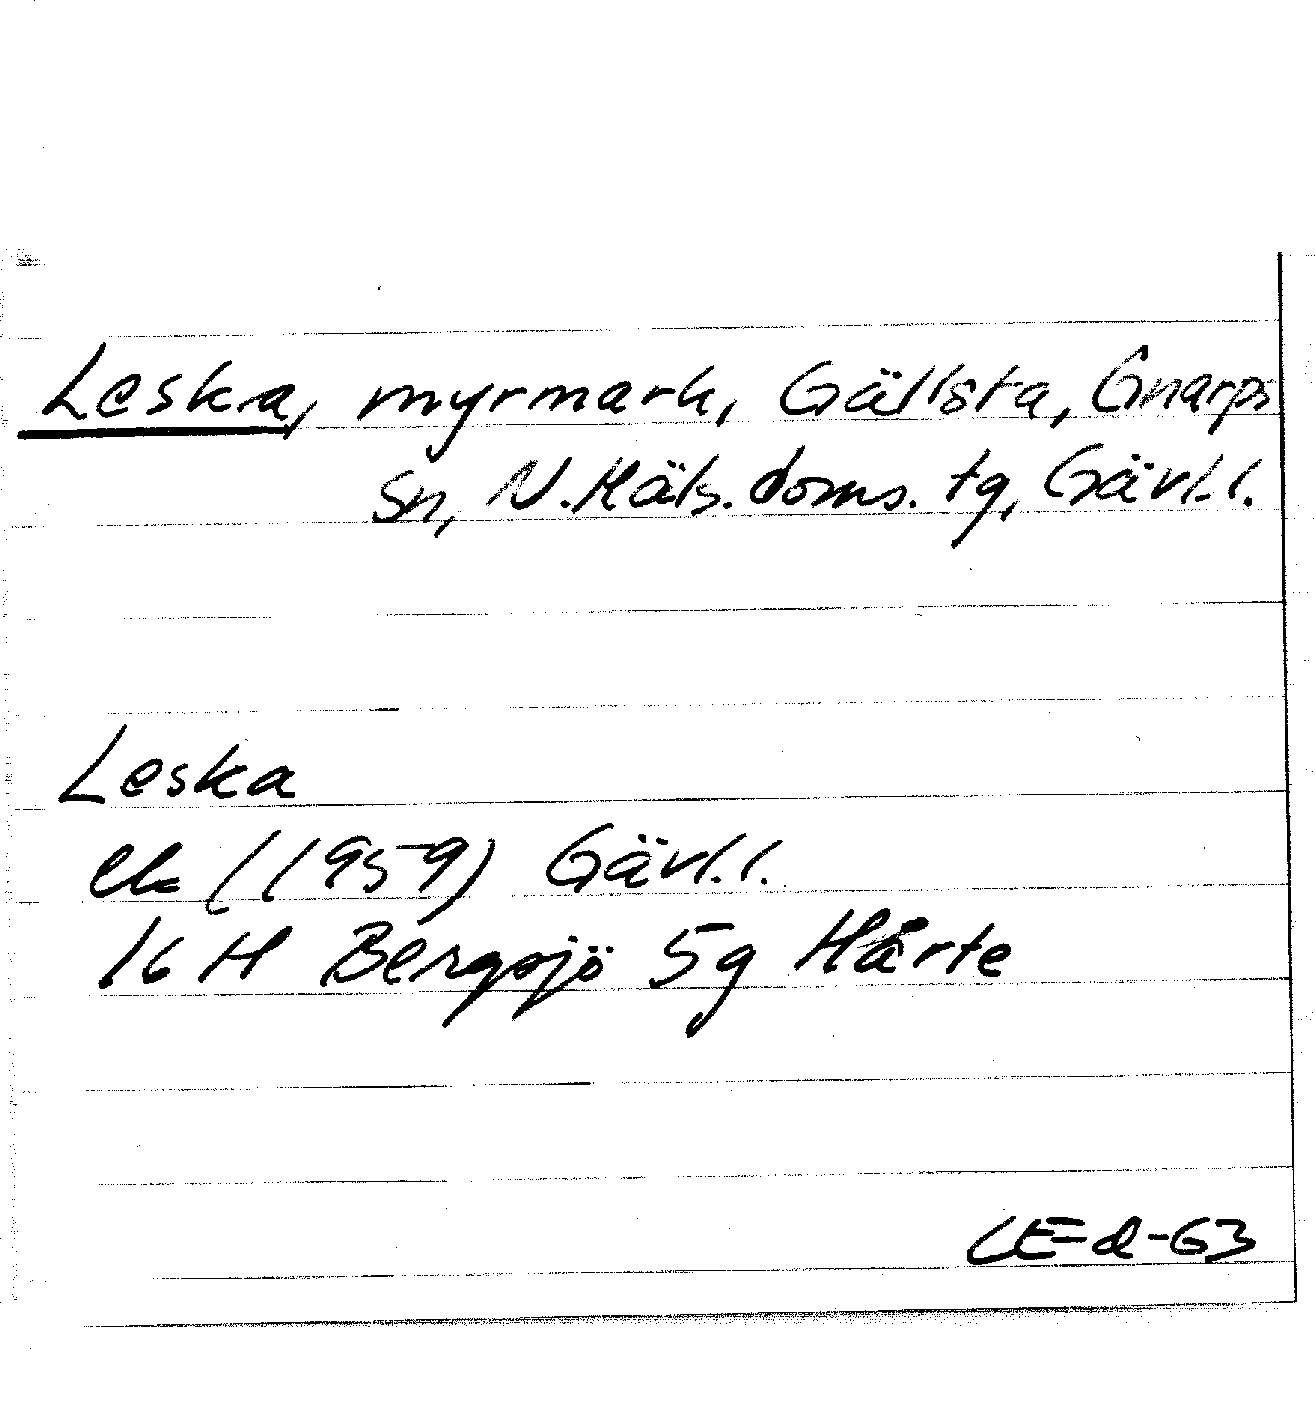 Leska, myrmark, Gällsta, Gnarps
Sn, N. Häls. doms. tg, Gävl.l.
Leska
ek (1959) Gävl.l.
16 H Bergsjö 5g Hårte